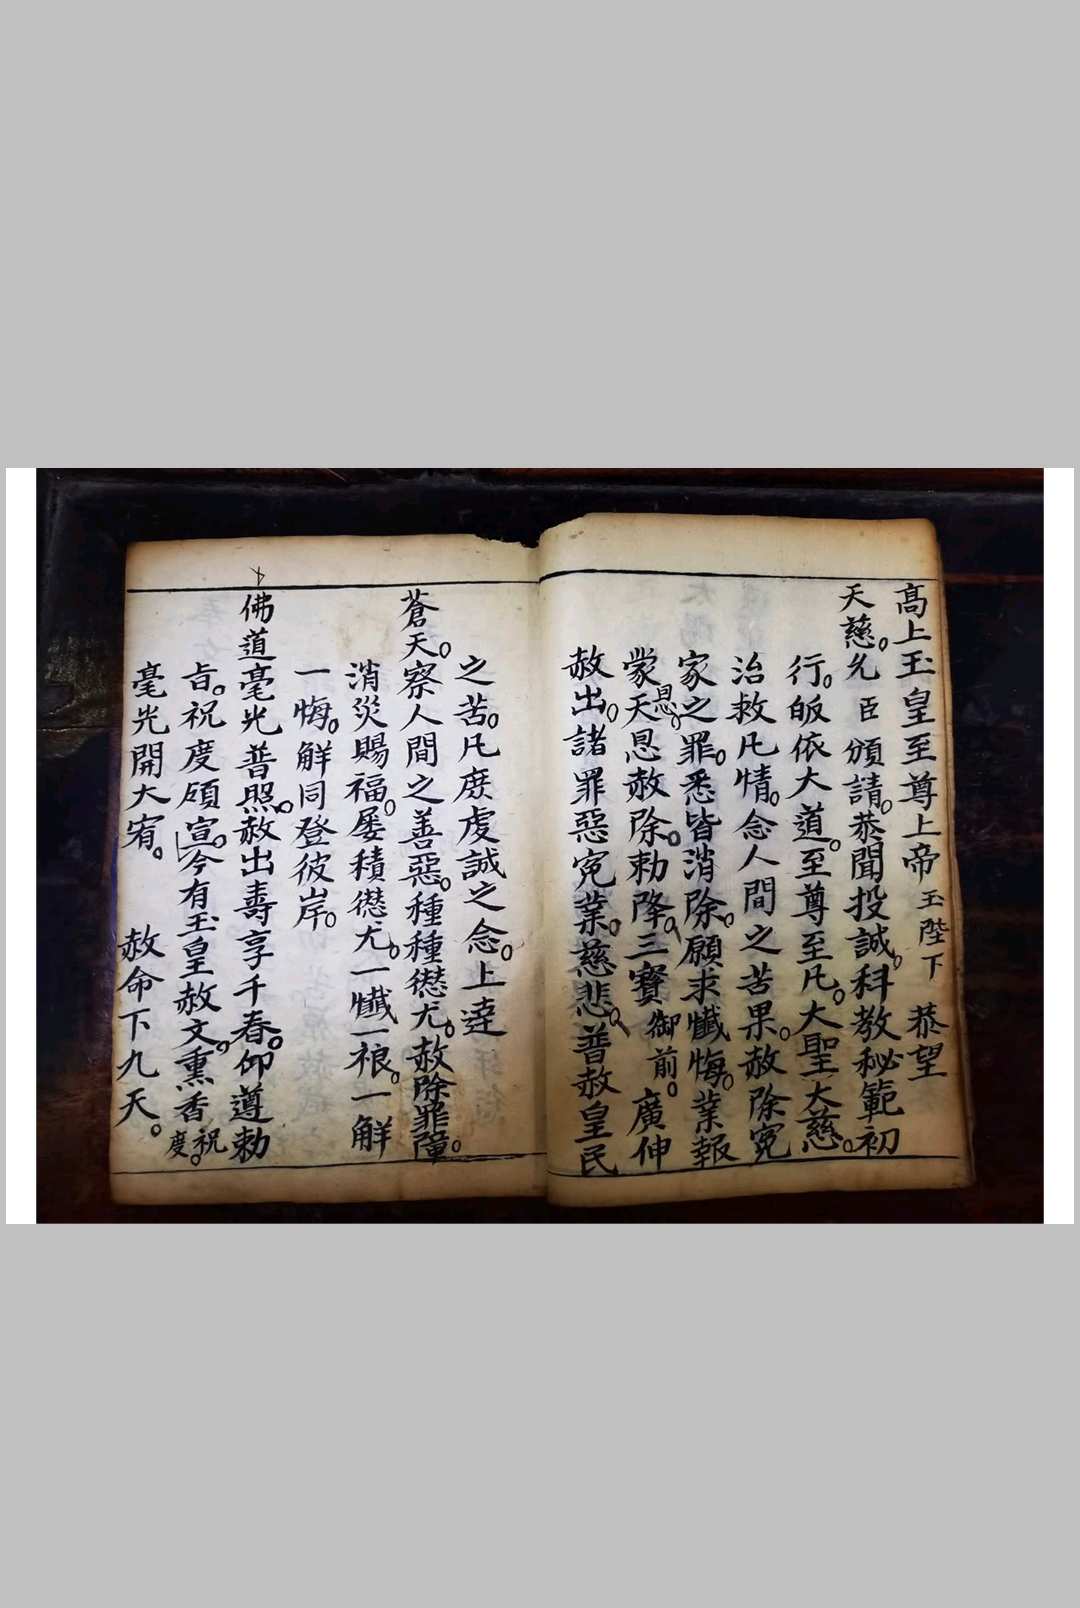 高上玉皇至尊上帝玉陛下 恭望
天慈。允臣頒請。恭聞投誠。科教秘範初
行。皈依大道。至尊至凡。大聖大慈。
治救凡情。念人間之苦果。赦除冤
家之罪。悉皆消除。願求懺悔。業報
蒙恩。天恩赦除。勅降。三寶御前。廣伸
赦出。諸罪惡冤業。慈悲。普赦皇民
之苦。凡庶虔誠之念。上達
蒼天。察人間之善惡。種種愆尤。赦除罪障。
消災賜福。屡積愆尤。一懺一禳。一解
一悔。解同登彼岸。
佛道毫光普照。赦出壽享千春。仰遵勅
旨。祝度頋宣。今有玉皇赦文。熏香祝度。
毫光開大宥。 赦命下九天。